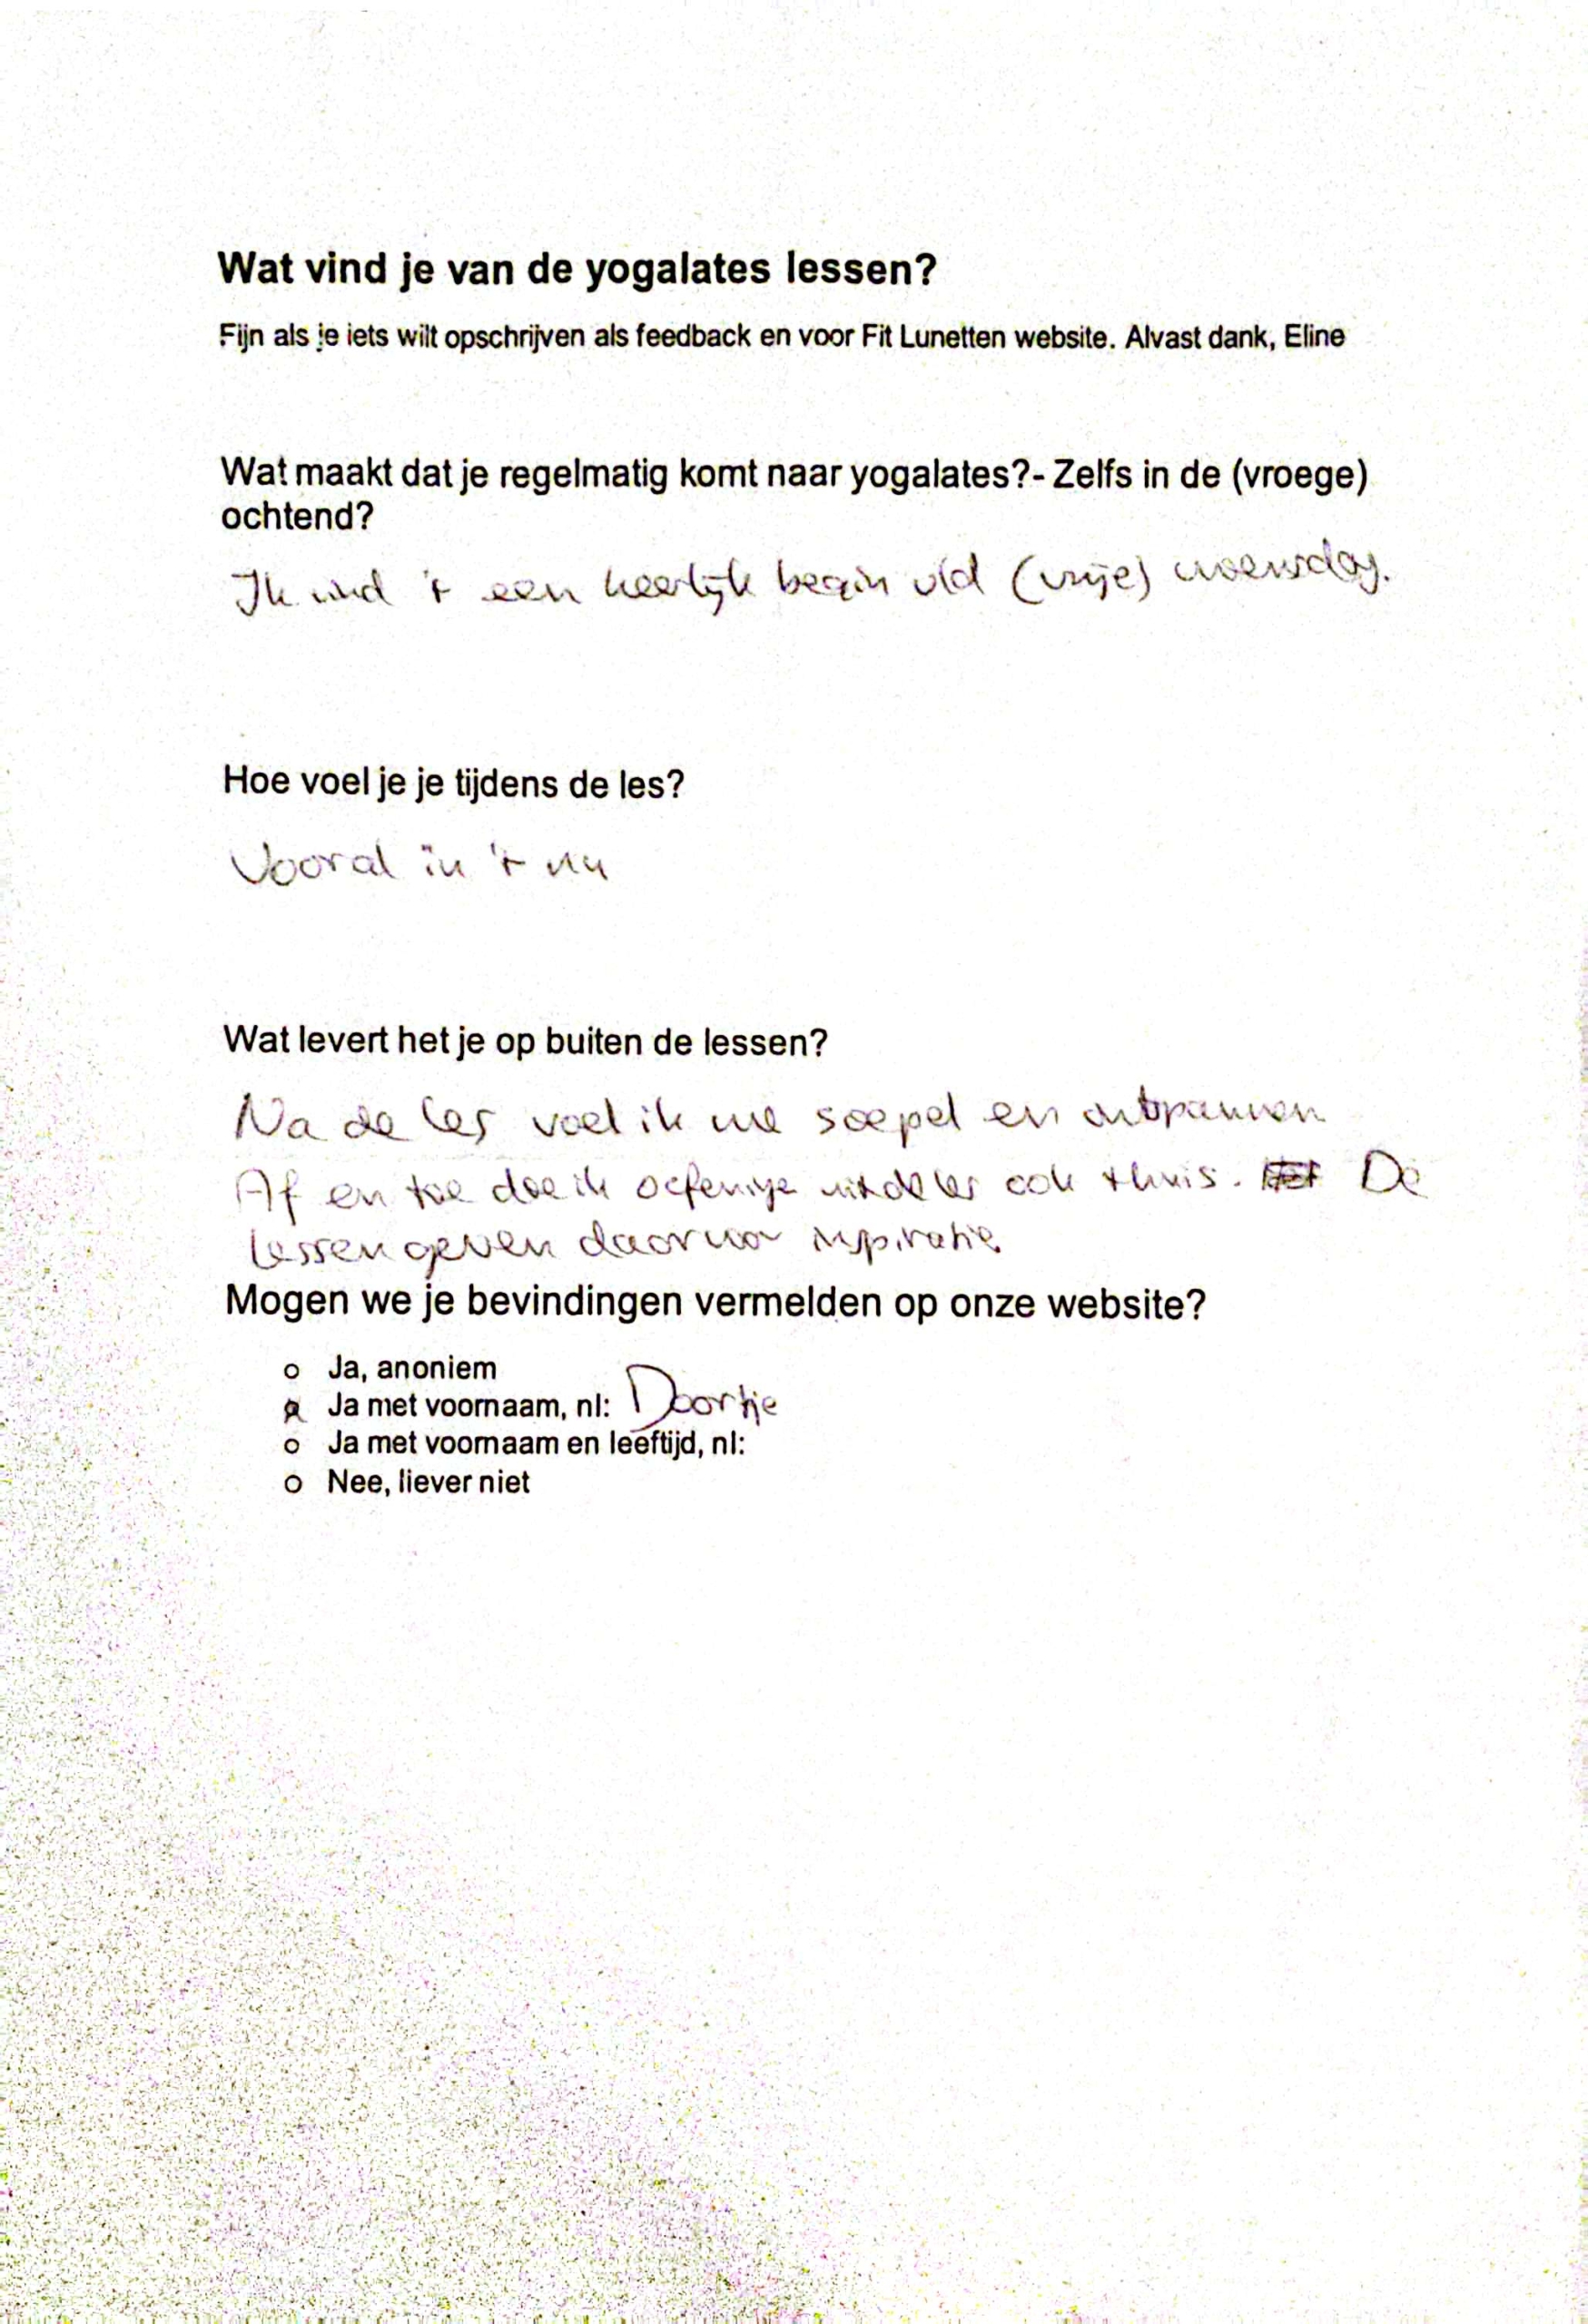 Wat vind je van de yogalates lessen?
Fijn als je iets wilt opschrijven als feedback en voor Fit Lunetten website. Alvast dank, Eline
Wat maakt dat je regelmatig komt naar yogalates?- Zelfs in de (vroege)
ochtend?
Ik vind 't een heerlijk begin v/d (vrije) woensdag.
Hoe voel je je tijdens de les?
Vooral in 't nu
Wat levert het je op buiten de lessen?
Na de les voel ik me soepel en ontspannen
Af en toe doe ik oefeninge uit de les ook thuis. De
lessen geven daarvoor inspiratie
Mogen we je bevindingen vermelden op onze website?
o Ja, anoniem
o Ja met voornaam, nl: Doortje
o Ja met voornaam en leeftijd, nl:
o Nee, liever niet